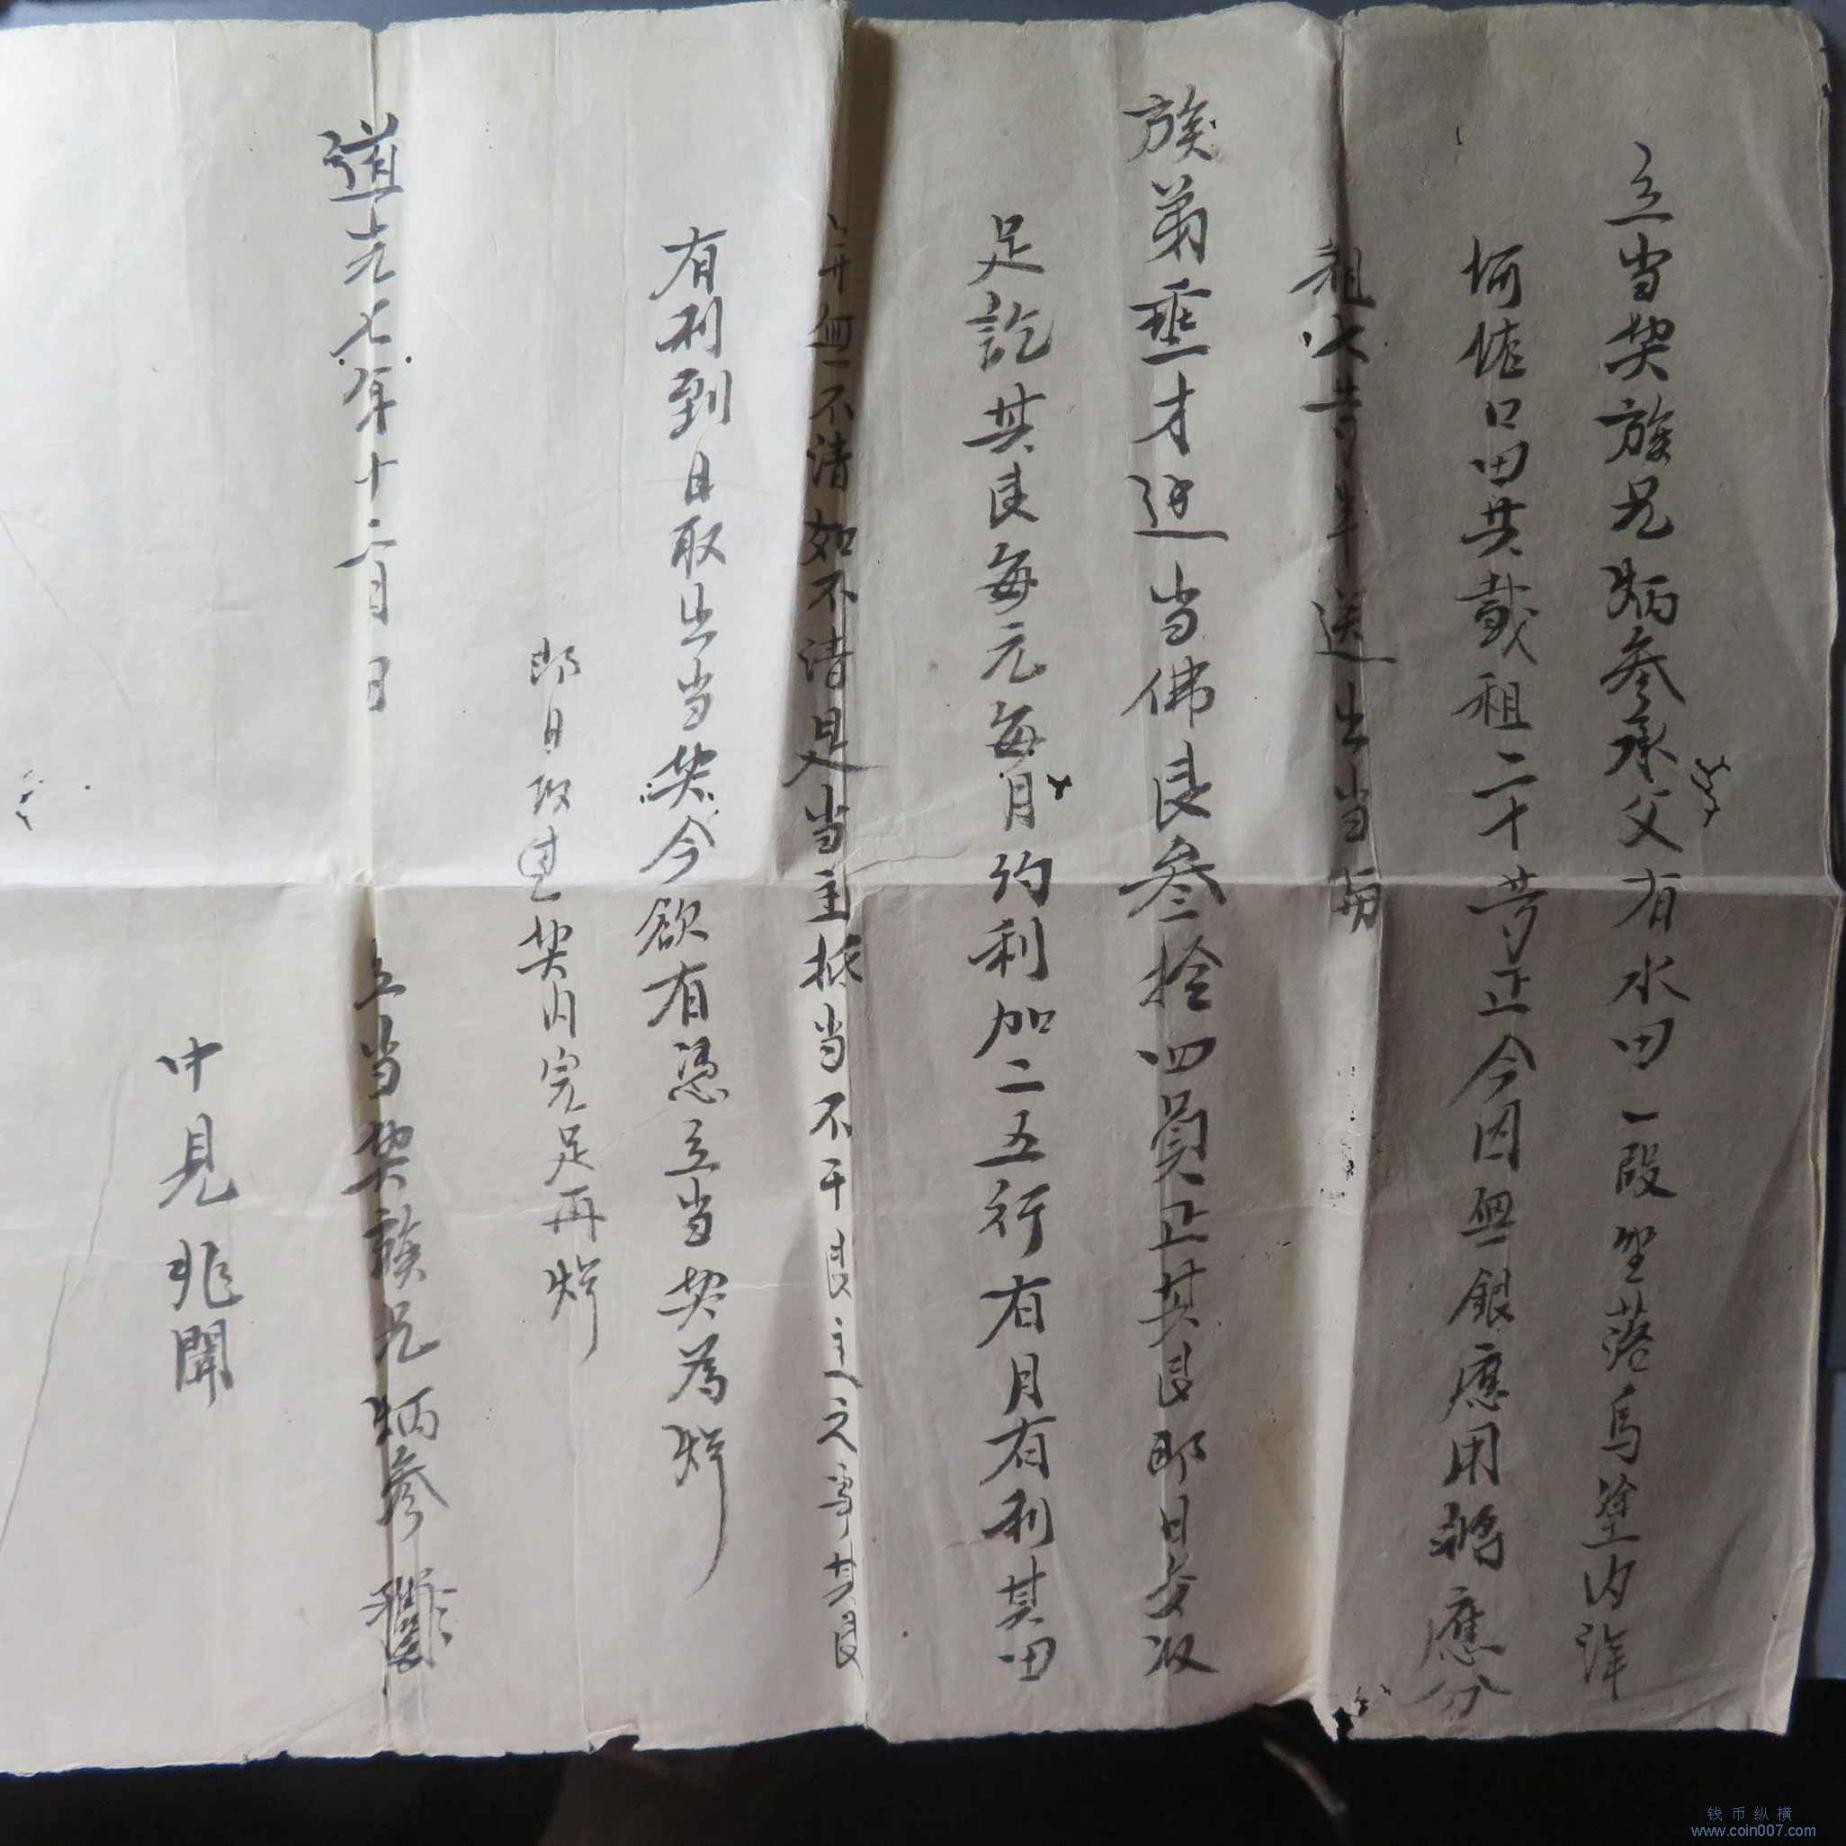 立当契族兄炳叁承父有水田一段坐落烏塗内洋
口田共載租二十苧正今因無銀應用將應分
租六苧年送出当
族弟垂才边当佛艮叁拾四員正其艮即日交收
足訖其艮每元每月約利加二五行有月有利其田
並無不清如不清是当主抵当不干艮主之事其艮
有利到日取出当契今欲有憑立当契為炤
即日收過契内完足再炤
道光七年十二月 日
立当契族兄炳參
中見兆聞
钱币纵横
www.coin007.com